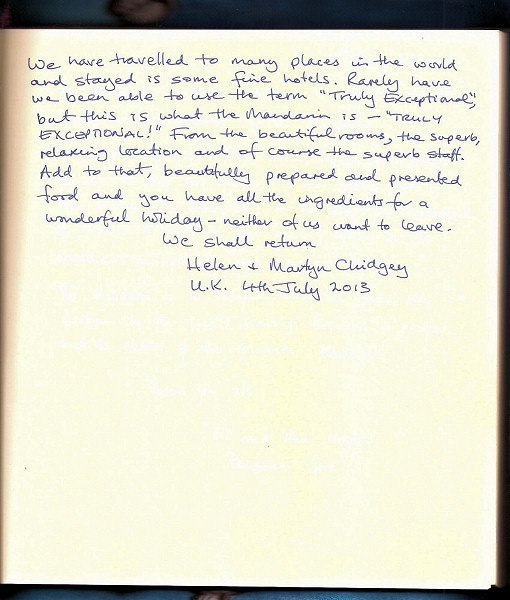 We have travelled to many places in the world
and stayed is some fine hotels. Rarely have
we been able to use the term "Truly Exceptional",
but this is what the Mandarin is – "TRULY
EXCEPTIONAL!" From the beautiful rooms, the superb,
relaxing location and of course the superb staff.
Add to that, beautifully prepared and presented
food and you have all the ingredients for a
wonderful holiday – neither of us want to leave.
We shall return
Helen + Martyn Chidgey
U.K. 4th July 2013